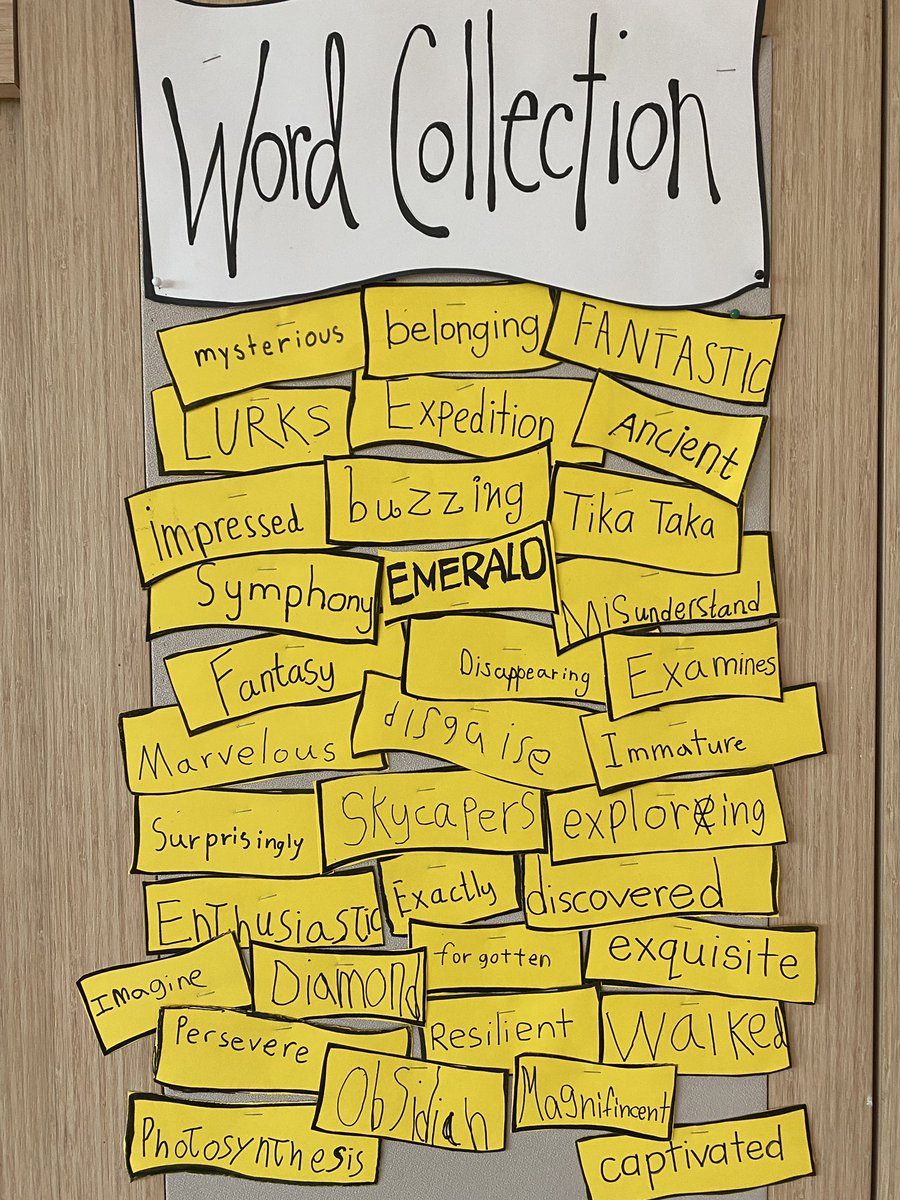 Word Collection
mysterious belonging FANTASTIC
LURKS Expedition Ancient
impressed buzzing Tika Taka
Symphony EMERALD Misunderstand
Fantasy Disappearing Examines
Marvelous disguise Immature
Surprisingly Skycapers exploring
Enthusiastic Exactly discovered
Imagine Diamond forgotten exquisite
Persevere Resilient Walked
Obsidian Magnifincent
Photosynthesis captivated